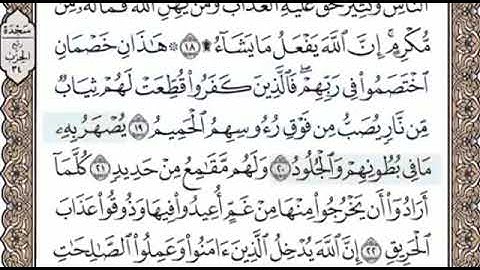 ٱلنَّاسِ وَكَثِيرٌ حَقَّ عَلَيْهِ ٱلْعَذَابُ وَمَن يُهِنِ ٱللَّهُ فَمَا لَهُۥ مِن
مُّكْرِمٍ ۚ إِنَّ ٱللَّهَ يَفْعَلُ مَا يَشَآءُ ۩ ١٨ ۞ هَٰذَانِ خَصْمَانِ
ٱخْتَصَمُوا۟ فِى رَبِّهِمْ ۖ فَٱلَّذِينَ كَفَرُوا۟ قُطِّعَتْ لَهُمْ ثِيَابٌ
مِّن نَّارٍ يُصَبُّ مِن فَوْقِ رُءُوسِهِمُ ٱلْحَمِيمُ ١٩ يُصْهَرُ بِهِۦ
مَا فِى بُطُونِهِمْ وَٱلْجُلُودُ ٢٠ وَلَهُم مَّقَٰمِعُ مِنْ حَدِيدٍ ٢١ كُلَّمَآ
أَرَادُوٓا۟ أَن يَخْرُجُوا۟ مِنْهَا مِنْ غَمٍّ أُعِيدُوا۟ فِيهَا وَذُوقُوا۟ عَذَابَ
ٱلْحَرِيقِ ٢٢ إِنَّ ٱللَّهَ يُدْخِلُ ٱلَّذِينَ ءَامَنُوا۟ وَعَمِلُوا۟ ٱلصَّٰلِحَٰتِ
سَجْدَة
الحزب
٣٤